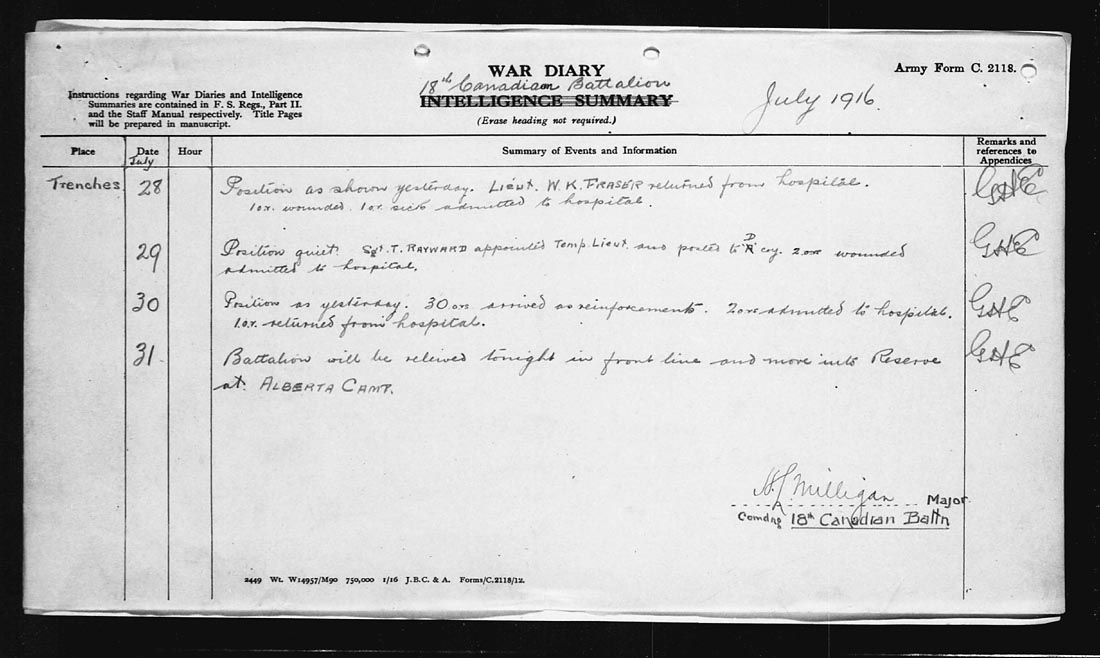 WAR DIARY
Army Form C. 2118.
18th Canadian Battalion
INTELLIGENCE SUMMARY
July 1916.
(Erase heading not required.)
Instructions regarding War Diaries and Intelligence
Summaries are contained in F. S. Regs., Part II.
and the Staff Manual respectively. Title Pages
will be prepared in manuscript.
Place Date Hour Summary of Events and Information Remarks and references to Appendices
July
Trenches 28 Position as shown yesterday. Lieut. W. K. FRASER returned from hospital. GHE
1 o.r. wounded. 1 o.r. sick admitted to hospital.
29 Position quiet. Sgt. T. RAYWARD appointed Temp. Lieut. and posted to D coy. 2 o.r. wounded GHE
admitted to hospital.
30 Position as yesterday. 30 o.r. arrived as reinforcements. 2 o.r. admitted to hospital. GHE
1 o.r. returned from hospital.
31 Battalion will be releived tonight in front line and move into Reserve GHE
at ALBERTA CAMP.
Milligan Major
Comdng 18th Canadian Battn
2449 Wt. W14957/M90 750,000 1/16 J.B.C. & A. Forms/C.2118/12.